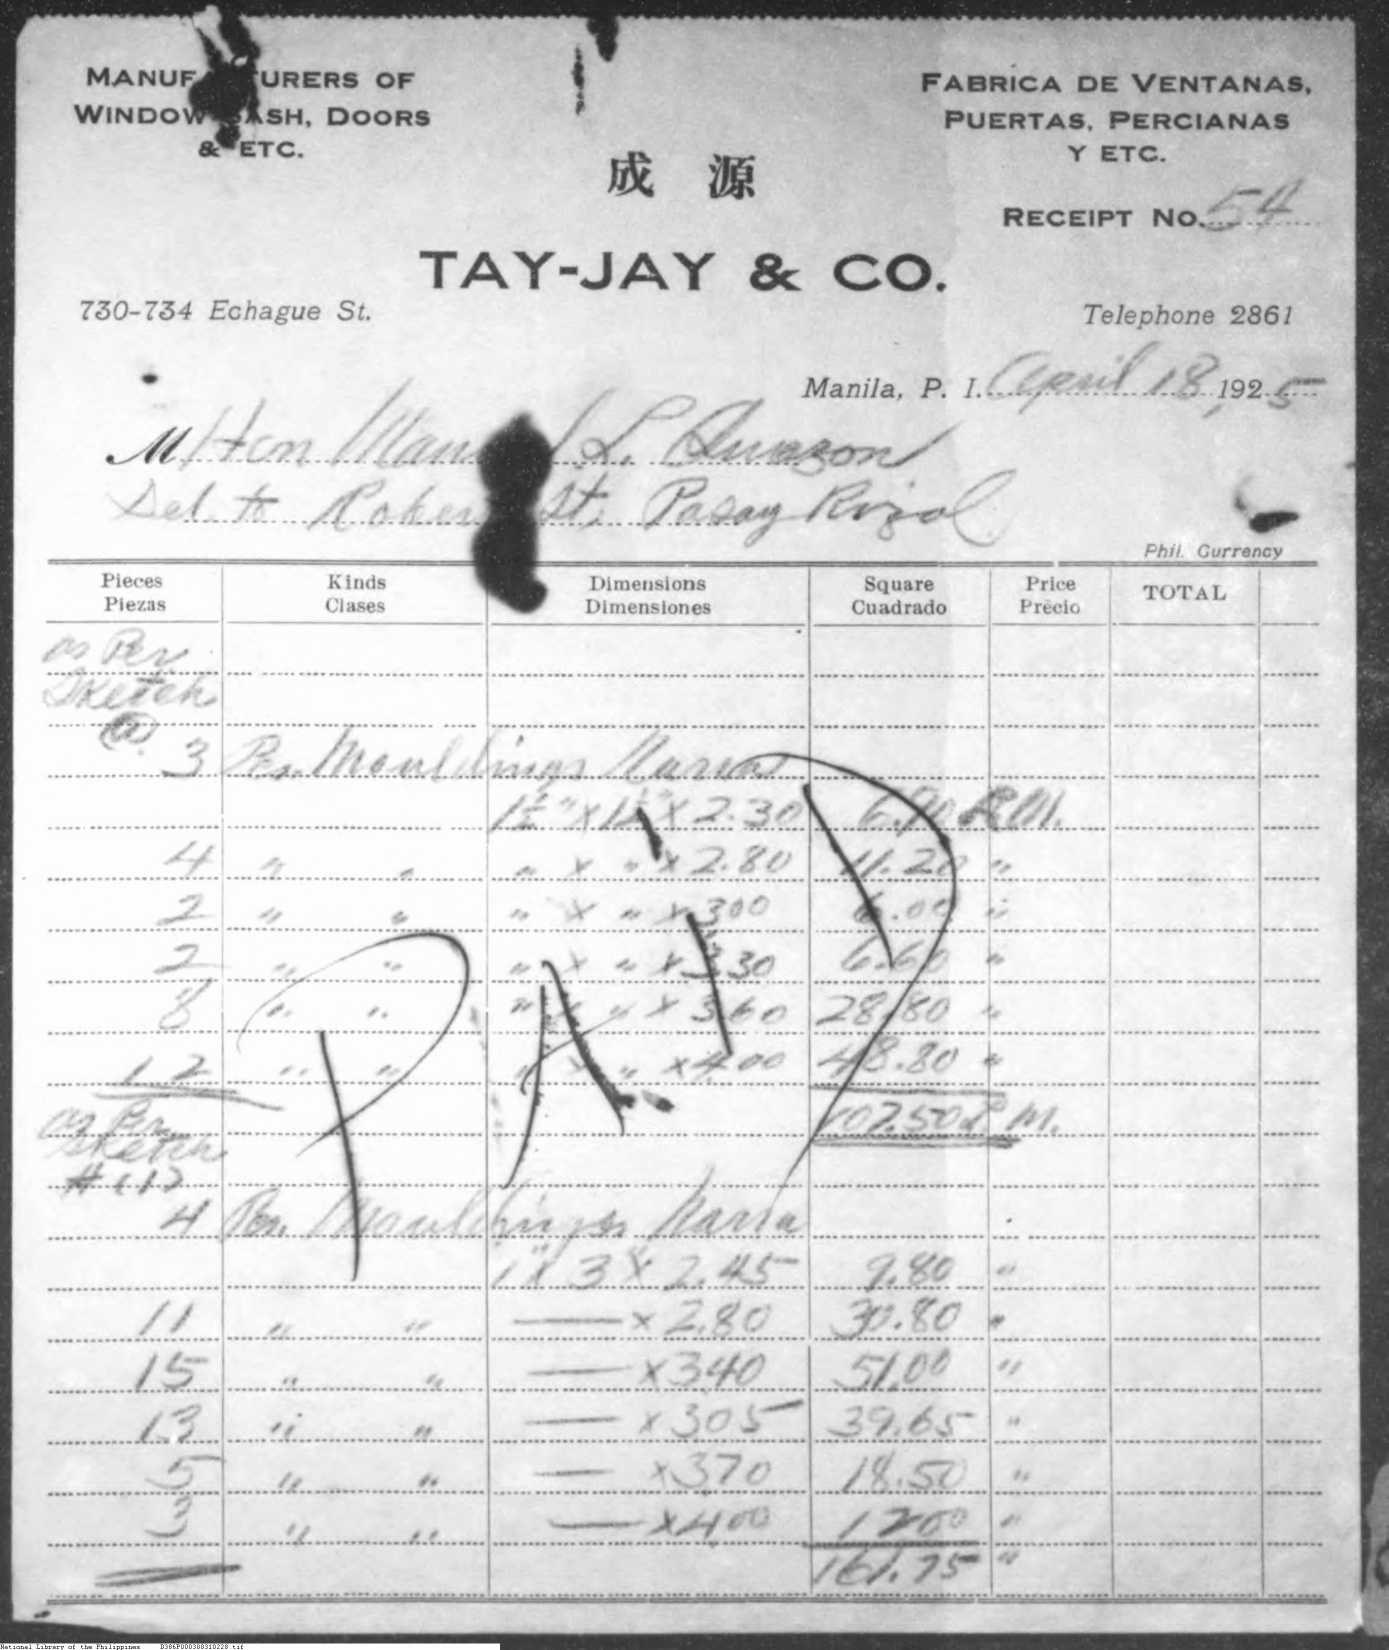 MANUFACTURERS OF
WINDOW SASH, DOORS
& ETC.
FABRICA DE VENTANAS,
PUERTAS, PERCIANAS
Y ETC.
成 源
RECEIPT NO. 54
TAY-JAY & CO.
730-734 Echague St.
Telephone 2861
Manila, P. I. April 18, 1925
M Hon Manuel L. Quezon
Del. to Robert St. Pasay Rizal
Phil. Currency
Pieces Kinds Dimensions Square Price TOTAL
Piezas Clases Dimensiones Cuadrado Précio
as Per
Sketch
(a)
3 Pcs. Mouldings Narra
1½" x 1½" x 2.30 6.90 L.M.
4 " " " x " x 2.80 11.20 "
2 " " " x " x 300 6.00 "
2 " " " x " x 3.30 6.60 "
8 " " " x " x 3.60 28.80 "
12 " " " x " x 4.00 48.80 "
107.50 L.M.
PAID
as Per
Sketch
#(1)
4 Pcs. Mouldings Narra
1" x 3" x 2.45 9.80 "
11 " " — x 2.80 30.80 "
15 " " — x 340 51.00 "
13 " " — x 305 39.65 "
5 " " — x 370 18.50 "
3 " " — x 400 1200 "
161.75 "
National Library of the Philippines D386P000300310228.tif